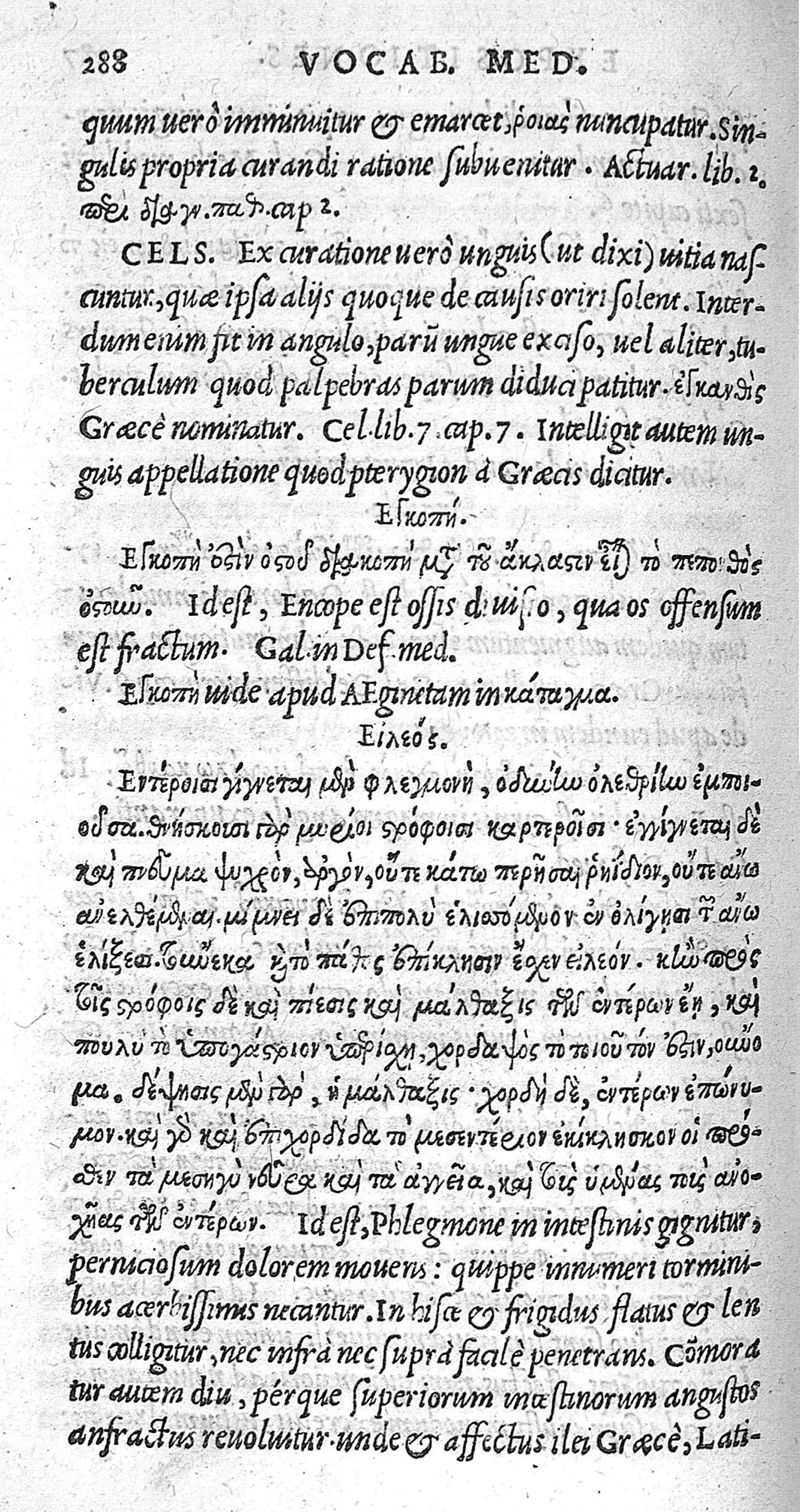 288 VOCAB. MED.
quum uerò imminuitur & emarcet, ῥοιὰς nuncupatur. Sin-
gulis propria curandi ratione subuenitur. Actuar. lib. 2.
περὶ διαγν. παθ. cap 2.
CELS. Ex curatione uerò unguis (ut dixi) uitia nas-
cuntur, quæ ipsa alijs quoque de causis oriri solent. Inter-
dum enim fit in angulo, parū ungue exciso, uel aliter, tu-
berculum quod palpebras parum diduci patitur. ἐγκανθὶς
Græcè nominatur. Cel. lib. 7. cap. 7. Intelligit autem un-
guis appellatione quod pterygion à Græcis dicitur.
Εγκοπή.
Εγκοπὴ ὀστὶν ὀστοῦ διακοπὴ μετὰ τοῦ ἄκλαστιν εἶναι τὸ πεπονθὸς
ὀστοῦν. Id est, Encope est ossis diuisio, qua os offensum
est fractum. Gal. in Def. med.
Εγκοπὴ uide apud AEginetam in κάταγμα.
Ειλεός.
Εντέροισι γίγνεται μὲν φλεγμονὴ, ὀδύνην ὀλεθρίην ἐμποι-
οῦσα. θνήσκουσι γὰρ μυρίοι στρόφοισι καρτεροῖσι· ἐγγίγνεται δὲ
καὶ πνεῦμα ψυχρὸν, ἀργὸν, οὔτε κάτω περῆσαι ῥηΐδιον, οὔτε ἄνω
ἀνελθέμεναι. μίμνει δὲ ἐπιπολὺ ἑλισσόμενον ἐν ὀλίγησι τῶν ἄνω
ἑλίξεσι. τοὔνεκα καὶ τὸ πάθος ἐπίκλησιν ἔσχεν εἰλεόν. κἢν πρὸς
τοῖς στρόφοις δὲ καὶ πίεσις καὶ μάλθαξις τῶν ἐντέρων ἔῃ, καὶ
πουλὺ τὸ ὑπογάστριον ὑπερίσχῃ, χορδαψὸς τὸ τοιοῦτόν ἐστιν, οὔνο
μα. δέψησις μὲν γὰρ, ἡ μάλθαξις· χορδὴ δὲ, ἐντέρων ἐπώνυ-
μον. καὶ γὰρ καὶ ἐπιχορδίδα τὸ μεσεντέριον ἐκίκλησκον οἱ πρό-
θεν τὰ μεσηγὺ νεῦρα καὶ τὰ ἀγγεῖα, καὶ τοὺς ὑμένας τοὺς ἀνο-
χῆας τῶν ἐντέρων. Id est, Phlegmone in intestinis gignitur,
perniciosum dolorem mouens: quippe innumeri tormini-
bus acerbissimis necantur. In hisce & frigidus flatus & len
tus colligitur, nec infrà nec suprà facilè penetrans. Cōmora
tur autem diu, pérque superiorum intestinorum angustos
anfractus reuoluitur. unde & affectus ilei Græcè, Lati-